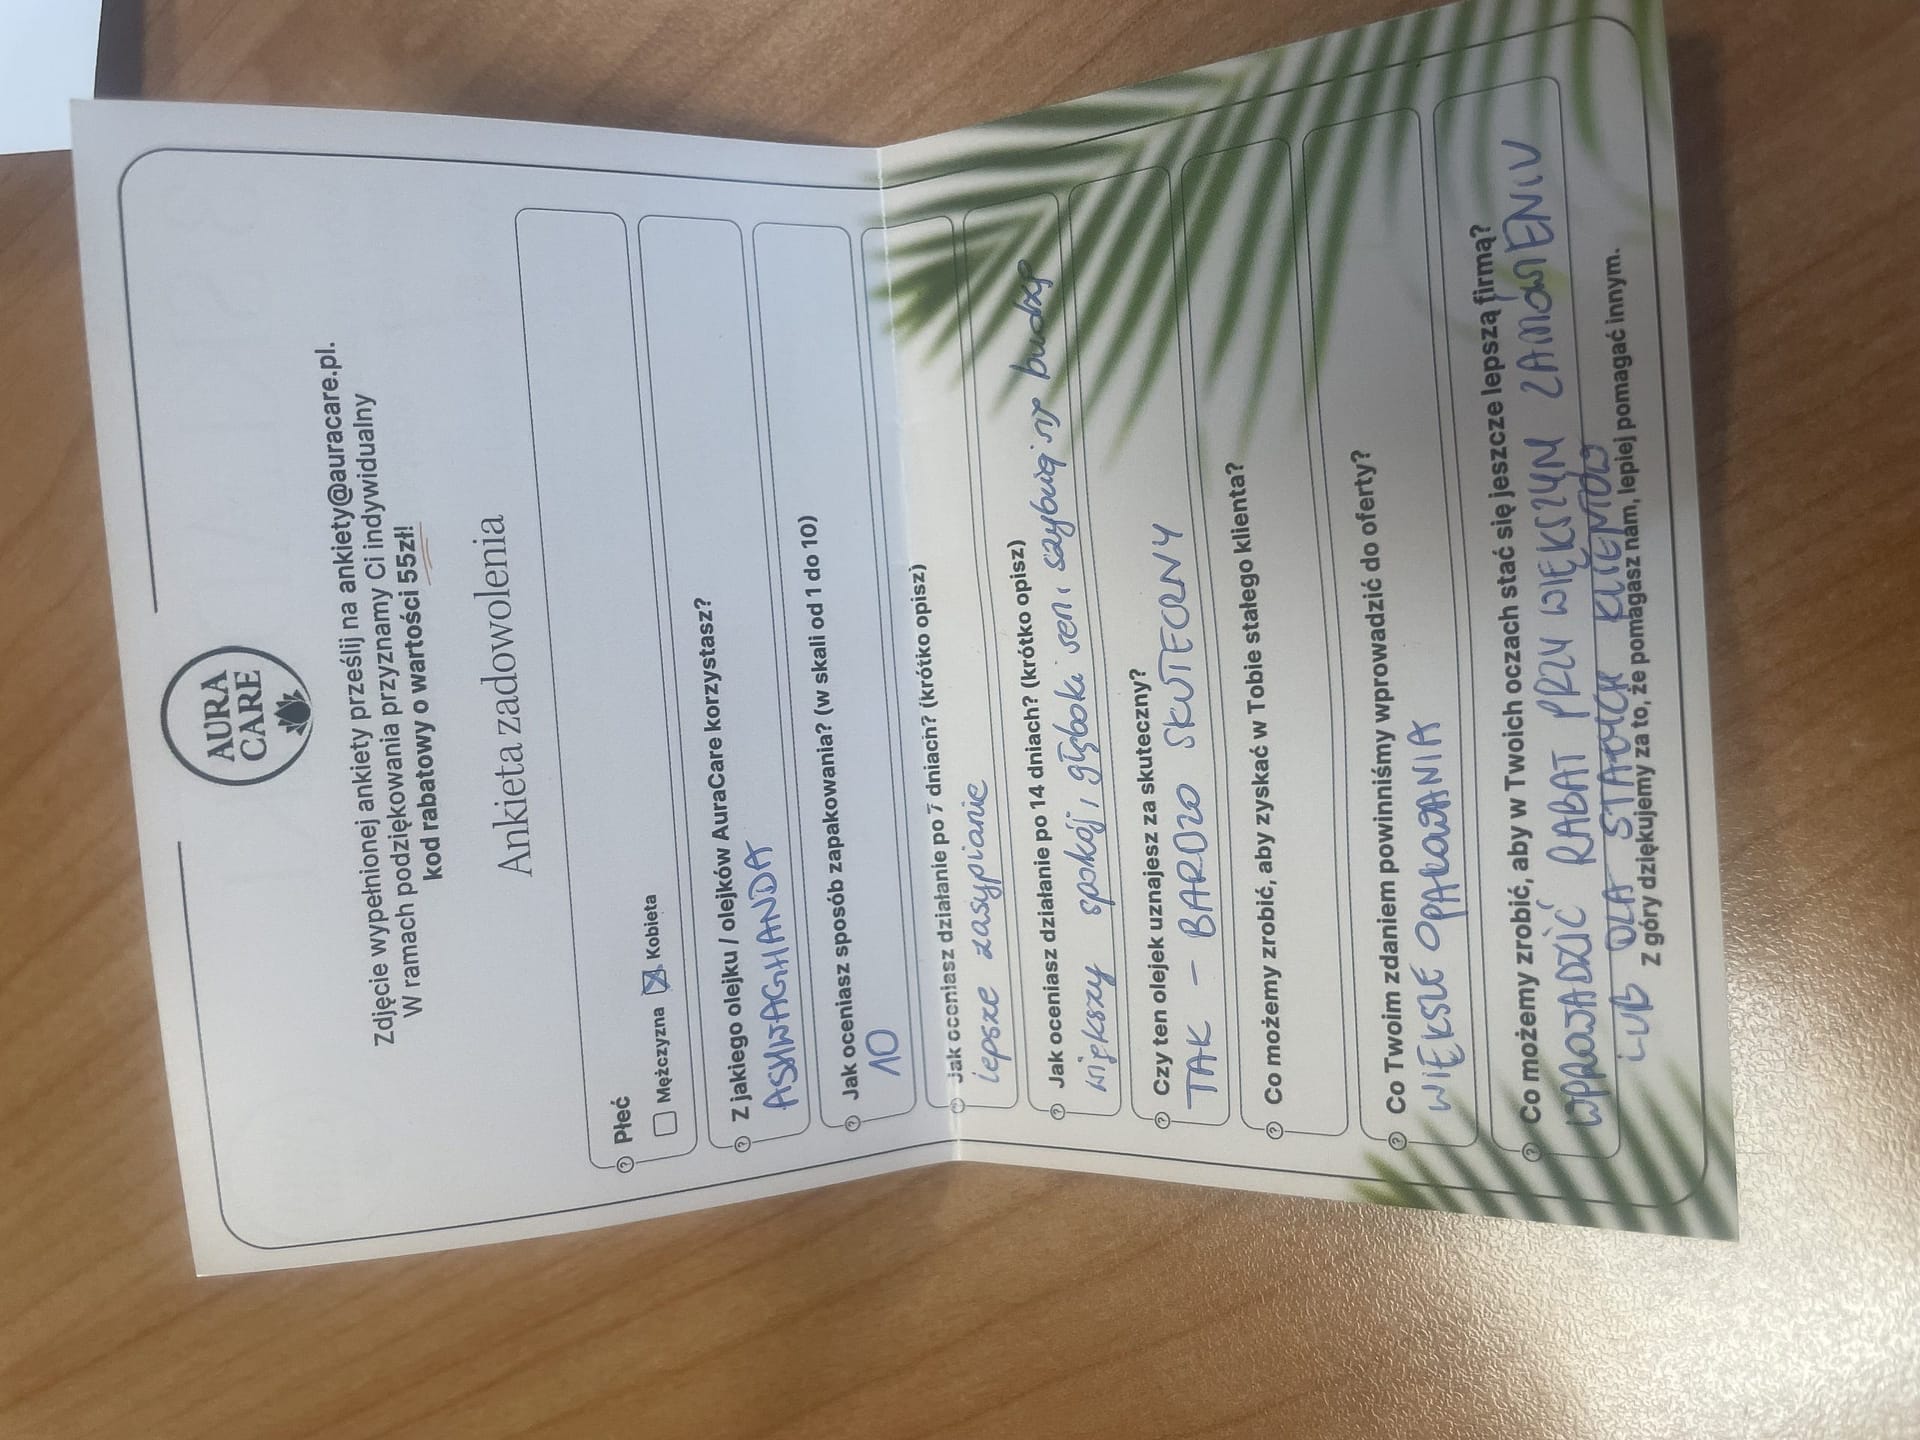 AURA
CARE
Zdjęcie wypełnionej ankiety prześlij na ankiety@auracare.pl.
W ramach podziękowania przyznamy Ci indywidualny
kod rabatowy o wartości 55zł!
Ankieta zadowolenia
Płeć
Mężczyzna Kobieta
Z jakiego olejku / olejków AuraCare korzystasz?
ASHWAGHANDA
Jak oceniasz sposób zapakowania? (w skali od 1 do 10)
10
Jak oceniasz działanie po 7 dniach? (krótko opisz)
lepsze zasypianie
Jak oceniasz działanie po 14 dniach? (krótko opisz)
większy spokój, głęboki sen,
Czy ten olejek uznajesz za skuteczny?
TAK - BARDZO SKUTECZNY
Co możemy zrobić, aby zyskać w Tobie stałego klienta?
Co Twoim zdaniem powinniśmy wprowadzić do oferty?
WIĘKSZE OPAKOWANIA
Co możemy zrobić, aby w Twoich oczach stać się jeszcze lepszą firmą?
WPROWADZIĆ RABAT PRZY WIĘKSZYM ZAMÓWIENIU
LUB DLA STAŁYCH KLIENTÓW
Z góry dziękujemy za to, że pomagasz nam, lepiej pomagać innym.